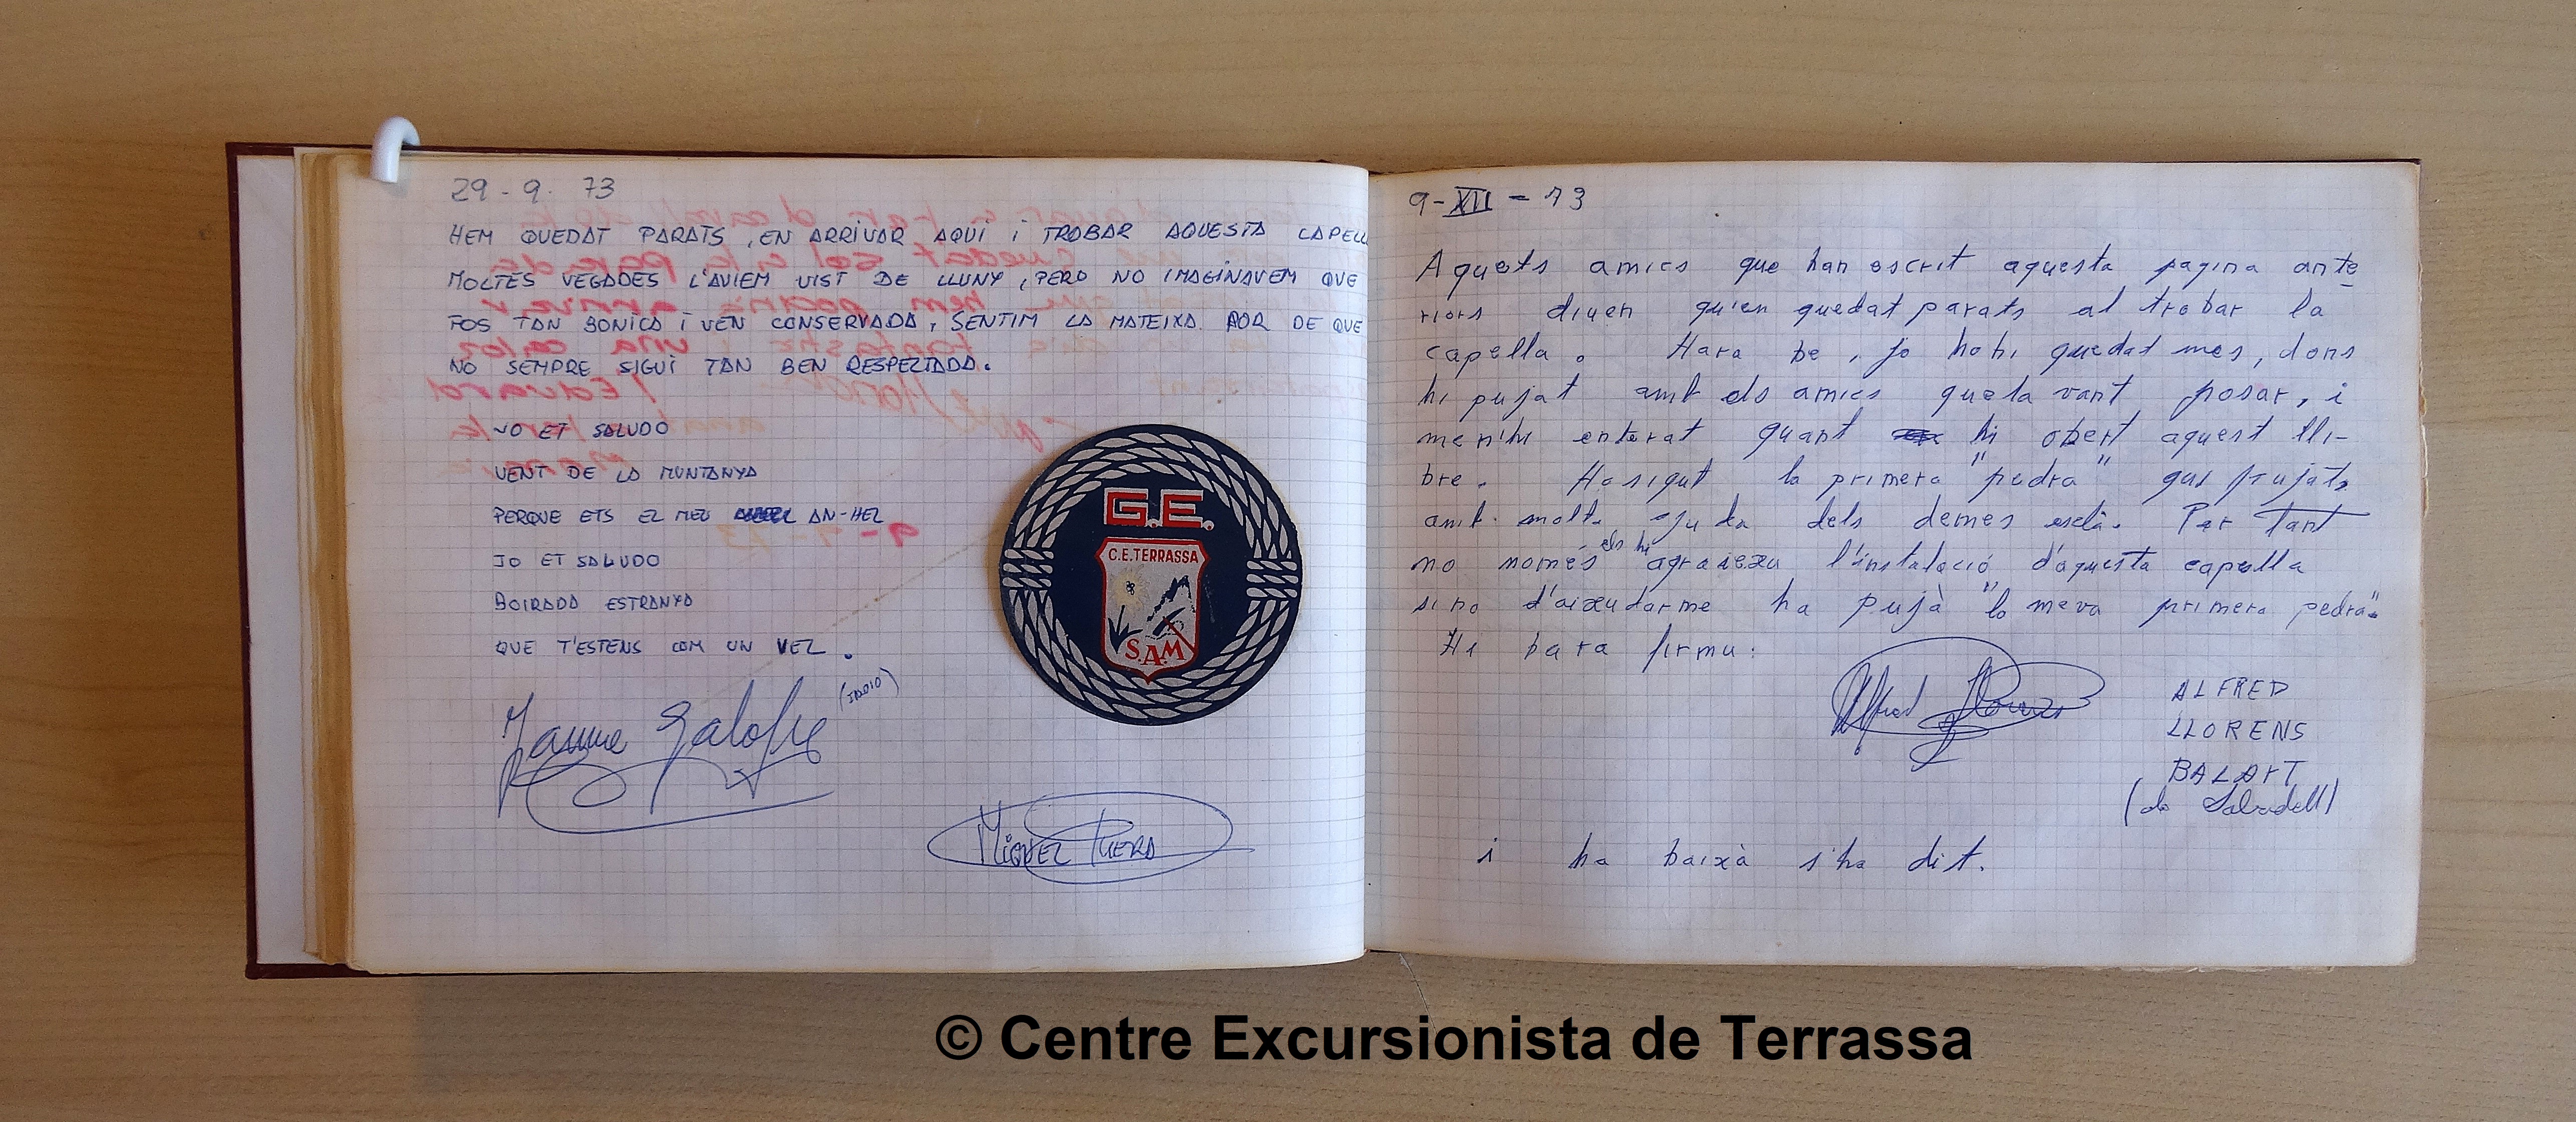 29-9-73
HEM QUEDAT PARATS, EN ARRIVAR AQUÍ I TROBAR AQUESTA CAPELL
MOLTES VEGADES L'AVIEM VIST DE LLUNY, PERO NO IMAGINAVEM QUE
FOS TAN BONICA I VEN CONSERVADA, SENTIM LA MATEIXA POR DE QUE
NO SEMPRE SIGUI TAN BEN RESPECTADA.
JO ET SALUDO
VENT DE LA MUNTANYA
PERQUE ETS EL MEU AN-HEL
JO ET SALUDO
BOIRADA ESTRANYA
QUE T'ESTENS COM UN VEL.
(INDIO)
Jaume Galofre
G.E.
C.E. TERRASSA
S.A.M
MIQUEL
9-XII-73
Aquets amics que han escrit aquesta pagina ante
riors diuen qu'en quedat parats al trobar la
capella. Hara be, jo hohi quedat mes, dons
hi pujat amb els amics quela vant posar, i
men'hi enterat quant hi obert aquest lli-
bre. Ha sigut la primera "pedra" que pujat
amb molta ajuda dels demes
Per tant
no només els hi agraiexu l'instalació d'aquesta capella
sino d'aixudarme ha pujà "la meva primera pedra"
Hi bara firmu:
Alfred Llorens
ALFRED
LLORENS
BALART
(de Sabadell)
i ha baixà s'ha dit.
© Centre Excursionista de Terrassa